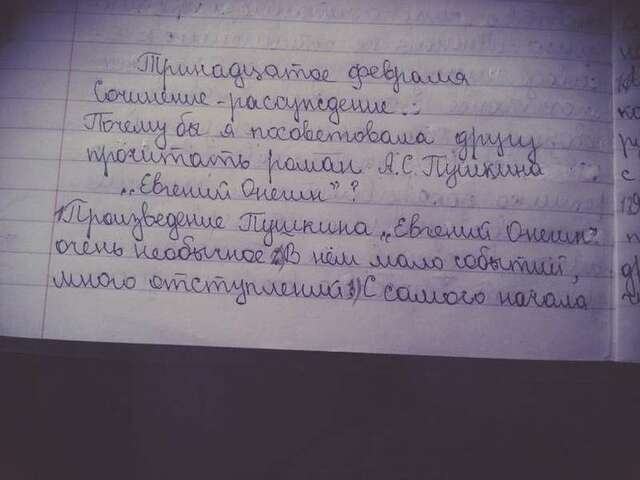 Тринадцатое февраля
Сочинение-рассуждение.
Почему бы я посоветовала другу
прочитать роман А.С.Пушкина
„Евгений Онегин"?
1)Произведение Пушкина „Евгений Онегин"
очень необычное 2)В нём мало событий,
много отступлений 3)С самого начала